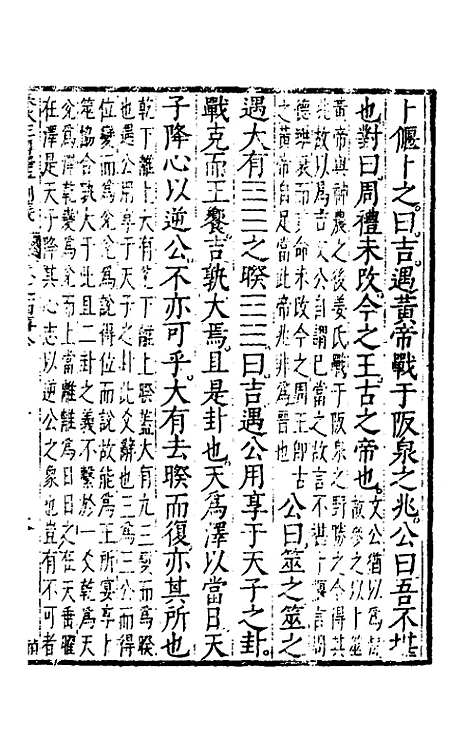 卜偃卜之。曰。吉。遇黃帝戰于阪泉之兆。公曰。吾不堪
也。對曰。周禮未改。今之王。古之帝也。
文公猶以為
故參之以卜筮
黃帝與神農之後姜氏戰于阪泉之野勝之今得其
兆故以為吉文公自謂已當之故言不堪于偃言周
德雖衰而其命未改今之周王即古
之黃帝自足當此帝兆非為晉也
公曰。筮之。筮之
遇大有☰☲之睽☱☲。曰。吉。遇公用享于天子之卦。
戰克而王饗。吉孰大焉。且是卦也。天為澤以當日。天
子降心以逆公。不亦可乎。大有去睽而復。亦其所也
乾下離上大有兌下離上睽蓋大有九三變而為睽
也遇公用享于天子之卦此爻辭也三為三公而得
位變而為兌兌為說得位而說故能為王所宴享卜
筮協合孰大于此且二卦之義不繫於一爻乾為天
兌為澤乾變為兌而上當離離為日日之在天垂曜
在澤是天子降其心志以逆公之象也豈有不可者